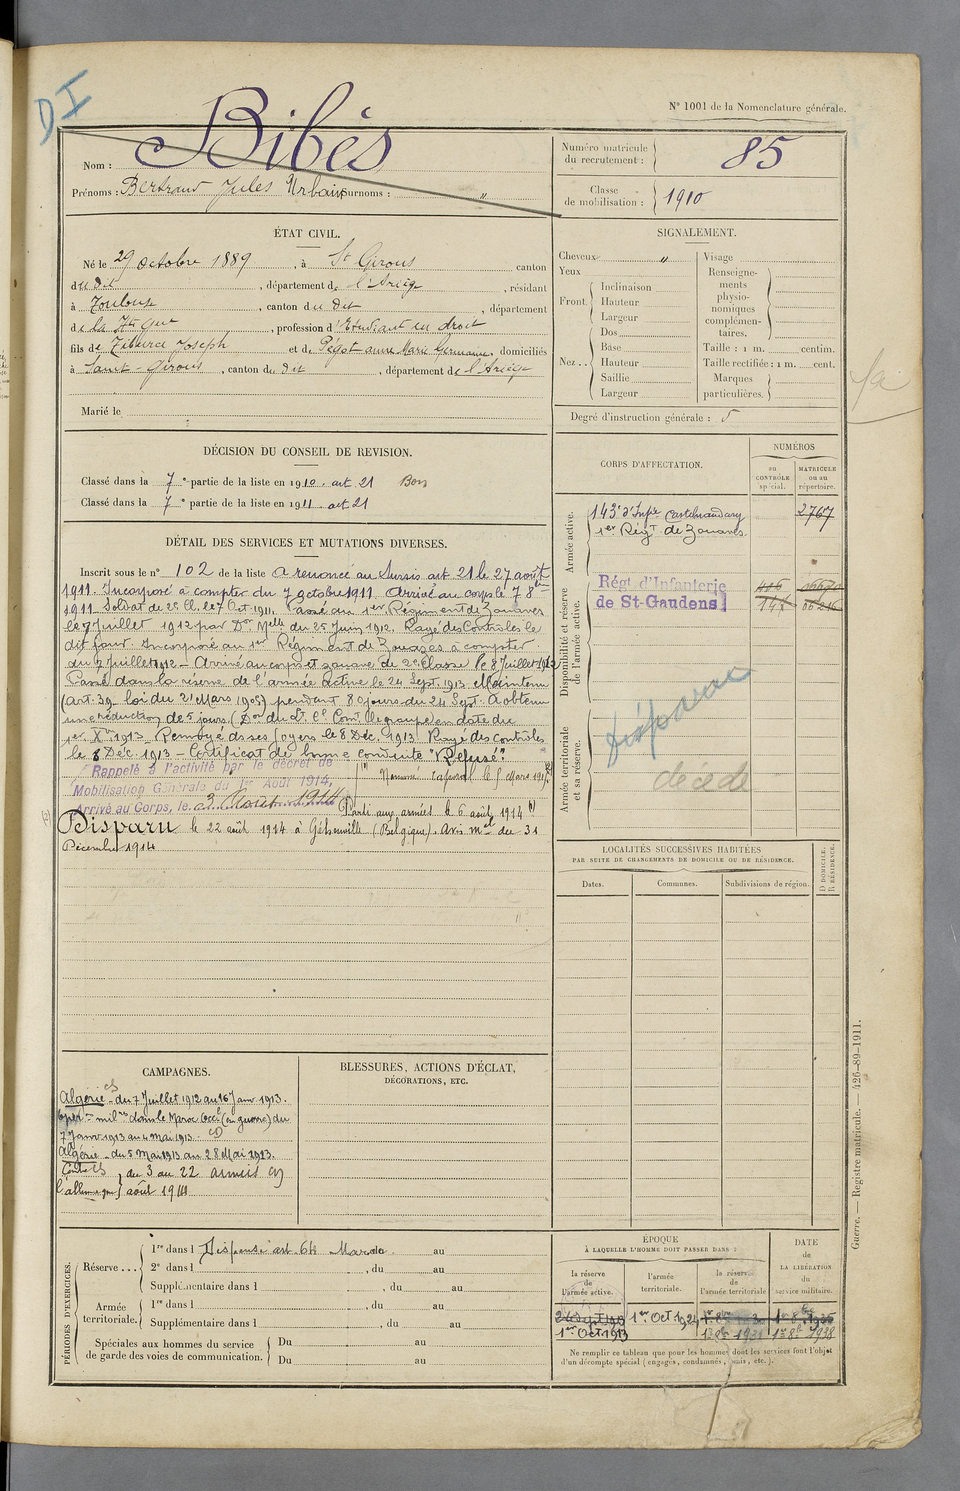 DI
N° 1001 de la Nomenclature générale.
Nom : Bibès
Prénoms : Bertrand Jules Urbain Surnoms : "
Numéro matricule du recrutement : 85
Classe de mobilisation : 1910
ÉTAT CIVIL.
Né le 29 octobre 1889, à St Girons canton
du dit, département de l'Ariège, résidant
à Toulouse, canton du dit, département
de la Hte Gne, profession d'Etudiant en droit
fils de Tiburce Joseph et de Pégot anne Marie Germaine, domiciliés
à Saint-Girons, canton du dit, département de l'Ariège
Marié le
SIGNALEMENT.
Cheveux "
Yeux
Front. Inclinaison
Hauteur
Largeur
Nez.. Dos
Base
Hauteur
Saillie
Largeur
Visage
Renseignements physionomiques complémentaires.
Taille : 1 m. centim.
Taille rectifiée : 1 m. cent.
Marques particulières.
Degré d'instruction générale : 5
DÉCISION DU CONSEIL DE REVISION.
Classé dans la 7e partie de la liste en 1910. art 21 Bon
Classé dans la 7e partie de la liste en 1911. art 21
DÉTAIL DES SERVICES ET MUTATIONS DIVERSES.
Inscrit sous le n° 102 de la liste A renoncé au sursis art 21 le 27 août
1911. Incorporé à compter du 7 octobre 1911. Arrivé au corps le 7 8bre
1911. Soldat de 2e Cl. le 7 Oct. 1911. Passé au 1er Régiment de Zouaves
le 7 juillet 1912 par Don Melle du 25 Juin 1912. Rayé des contrôles le
dit jour. Incorporé au 1er Régiment de Zouaves à compter
du 7 Juillet 1912 - Arrivé au corps et zouave de 2e Classe le 8 juillet 1912
Passé dans la réserve de l'armée active le 24 Sept. 1913. Maintenu
(art. 39 - loi du 21 Mars 1905) pendant 80 jours du 24 Sept. A obtenu
une réduction de 5 jours (Don du Lt Cl Comt le groupe) en date du
1er Xbre 1913. Renvoyé dans ses foyers le 8 Déc. 1913. Rayé des contrôles
le 8 Déc. 1913 - Certificat de bonne conduite "Refusé".
Rappelé à l'activité par le décret de
Mobilisation Générale du 1er Août 1914,
Arrivé au Corps, le 3 Août 1914
Nommé Caporal le 5 Mars 191
Parti aux armées le 6 août 1914
Disparu le 22 août 1914 à (Belgique). Avis mel du 31
Décembre 1914
CORPS D'AFFECTATION.
NUMÉROS
au CONTRÔLE spécial.
MATRICULE ou au répertoire.
Armée active.
143e d'Infie Castelnaudary 2767
1er Régt de Zouaves.
Disponibilité et réserve de l'armée active.
Régt d'Infanterie
de St-Gaudens
Armée territoriale et sa réserve.
disparu
décédé
LOCALITÉS SUCCESSIVES HABITÉES
PAR SUITE DE CHANGEMENTS DE DOMICILE OU DE RÉSIDENCE.
Dates.
Communes.
Subdivisions de région.
D DOMICILE.
R RÉSIDENCE.
CAMPAGNES.
Algérie - du 7 Juillet 1912 au 16 Janv 1913.
Opérons milres dans le Maroc Occl (en guerre) du
17 Janv 1913 au 4 Mai 1913.
Algérie - du 5 Mai 1913 au 28 Mai 1913.
Contre l'allemagne du 3 au 22 août 1914
BLESSURES, ACTIONS D'ÉCLAT,
DÉCORATIONS, ETC.
PÉRIODES D'EXERCICES.
Réserve ... 1re dans l Dispensé art. 64 Maroc au
2e dans l, du au
Supplémentaire dans l, du au
Armée territoriale. 1re dans l, du au
Supplémentaire dans l, du au
Spéciales aux hommes du service de garde des voies de communication. Du au
Du au
ÉPOQUE
À LAQUELLE L'HOMME DOIT PASSER DANS :
la réserve de l'armée active.
l'armée territoriale.
la réserve de l'armée territoriale
DATE de LA LIBÉRATION du service militaire.
1er Oct 1913
1er Oct. 1924
Ne remplir ce tableau que pour les hommes dont les services font l'objet
d'un décompte spécial (engagés, condamnés, omis, etc.).
Guerre. — Registre matricule. — 426-89-1911.